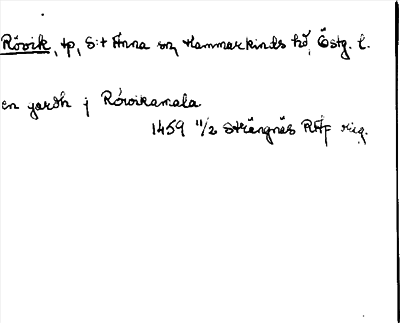 Rövik, tp, S:t Anna sn, Hammarkinds hd, Östg. l.
en gardh j Rörvikamala
1459 11/2 Strängnäs RAp orig.